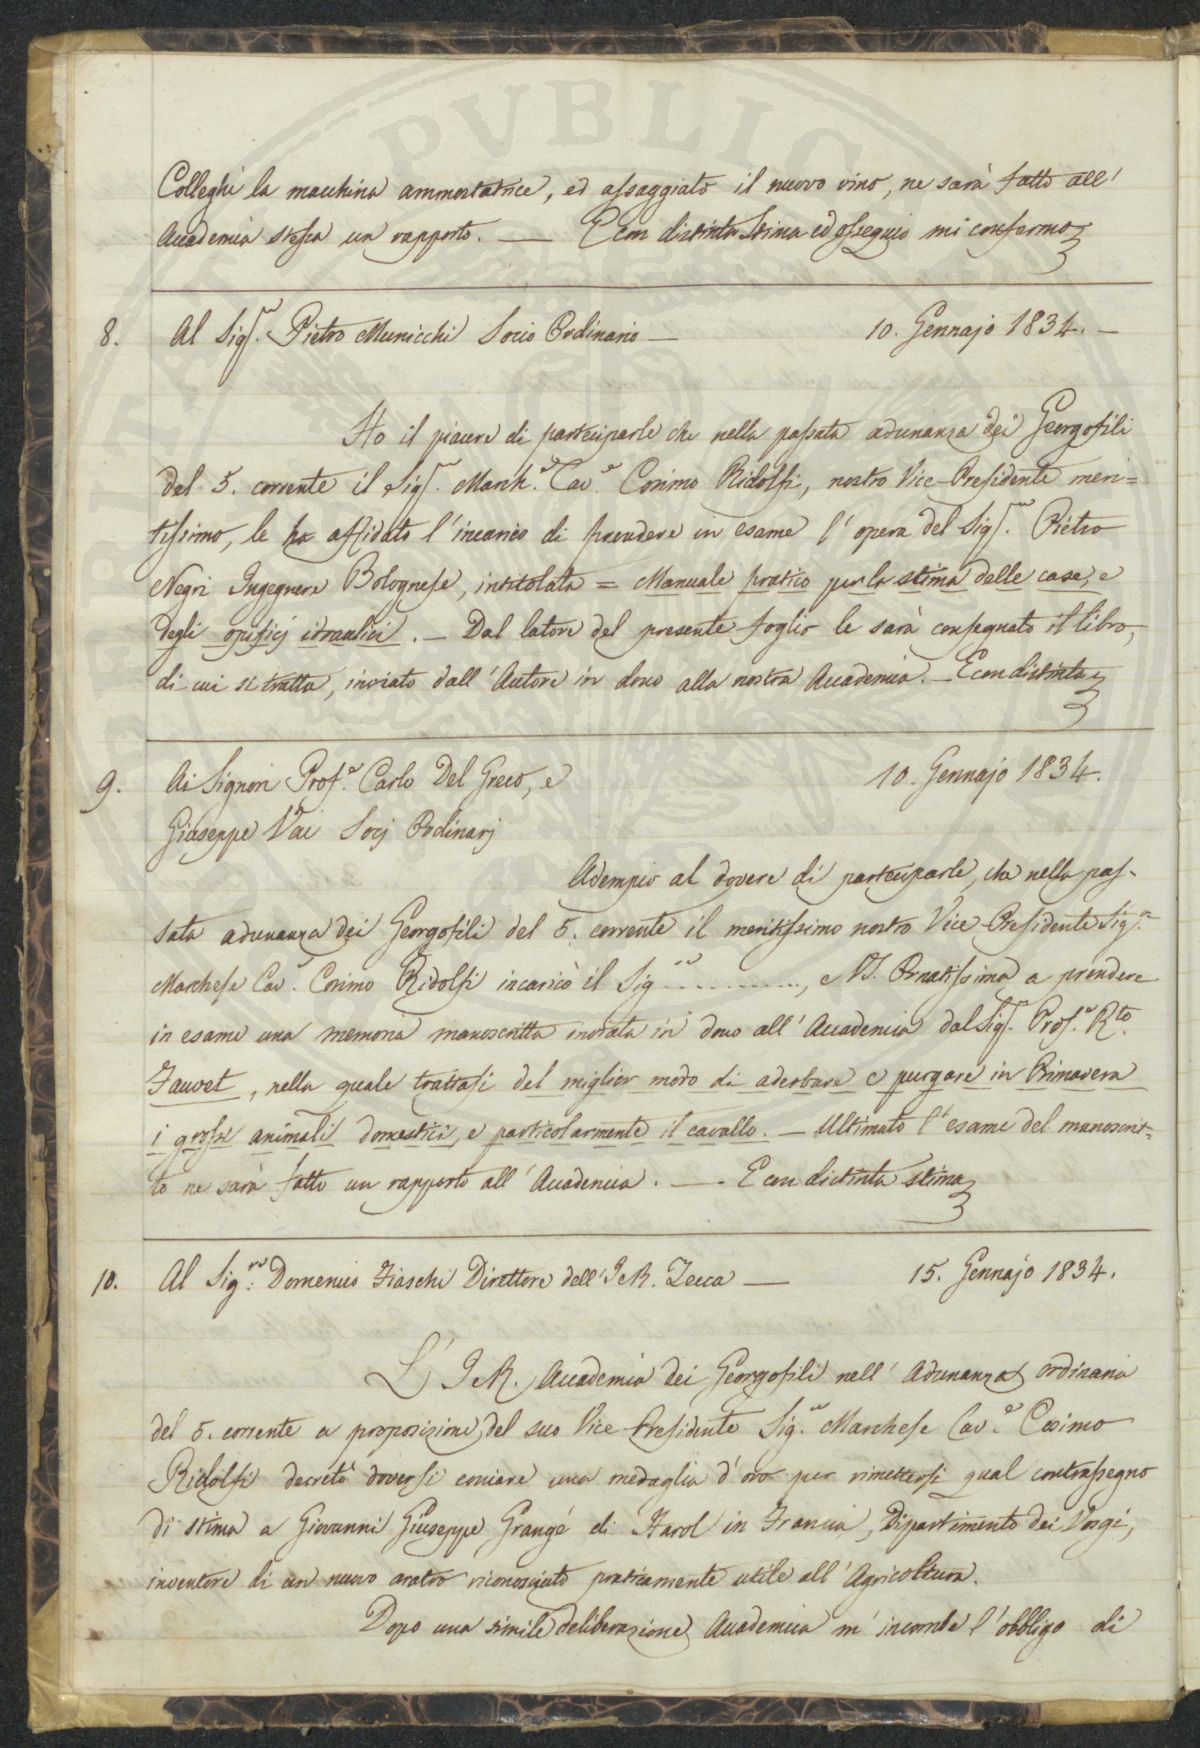 Colleghi la macchina ammostatrice, ed assaggiato il nuovo vino, ne sarà fatto all'
Accademia stessa un rapporto. — E con distinta stima ed ossequio mi confermo
8. Al Sigr. Pietro Municchi Socio Ordinario — 10. Gennajo 1834. —
Ho il piacere di parteciparle che nella passata adunanza dei Georgofili
del 5. corrente il Sigr. March.e Cav.e Cosimo Ridolfi, nostro Vice-Presidente meri=
tissimo, le ha affidato l'incarico di prendere in esame l'opera del Sigr. Pietro
Negri Ingegnere Bolognese, intitolata = Manuale pratico per la stima delle case, e
degli opificj idraulici. — Dal latore del presente foglio le sarà consegnato il libro,
di cui si tratta, inviato dall'Autore in dono alla nostra Accademia. — E con distinta
9. Ai Signori Prof.e Carlo Del Greco, e 10. Gennajo 1834.
Giuseppe Vai Socj Ordinarj
Adempio al dovere di parteciparle, che nella pas-
sata adunanza dei Georgofili del 5. corrente il meritissimo nostro Vice Presidente Sig.r
Marchese Cav.e Cosimo Ridolfi incaricò il Sig.r .........., e VS. Ornatissima a prendere
in esame una memoria manoscritta inviata in dono all'Accademia dal Sigr. Prof.e R.to
Fauvet, nella quale trattasi del miglior modo di aderbare e purgare in Primavera
i grossi animali domestici, e particolarmente il cavallo. — Ultimato l'esame del manoscrit=
to ne sarà fatto un rapporto all'Accademia. — E con distinta stima
10. Al Sig.re Domenico Fiaschi Direttore dell'I e R. Zecca — 15. Gennajo 1834.
L'I e R. Accademia dei Georgofili nell'Adunanza ordinaria
del 5. corrente a proposizione del suo Vice Presidente Sig.re Marchese Cav.e Cosimo
Ridolfi decretò doversi coniare una medaglia d'oro per rimettersi qual contrassegno
di stima a Giovanni Giuseppe Grangé di Harol in Francia, Dipartimento dei Vosgi,
inventore di un nuovo aratro riconosciuto praticamente utile all'Agricoltura.
Dopo una simile deliberazione Accademica m'incombe l'obbligo di
PVBLICA